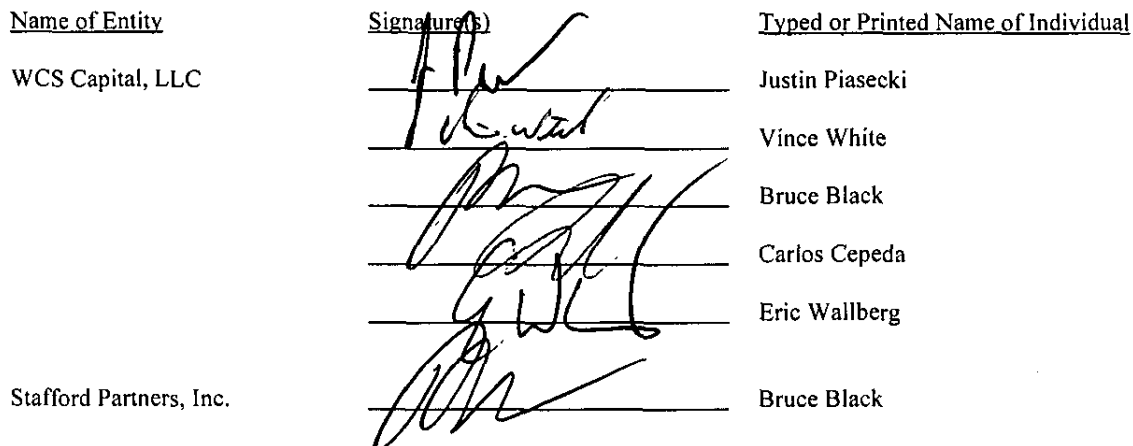 Name of Entity Signature(s) Typed or Printed Name of Individual
WCS Capital, LLC Justin Piasecki
Vince White
Bruce Black
Carlos Cepeda
Eric Wallberg
Stafford Partners, Inc. Bruce Black